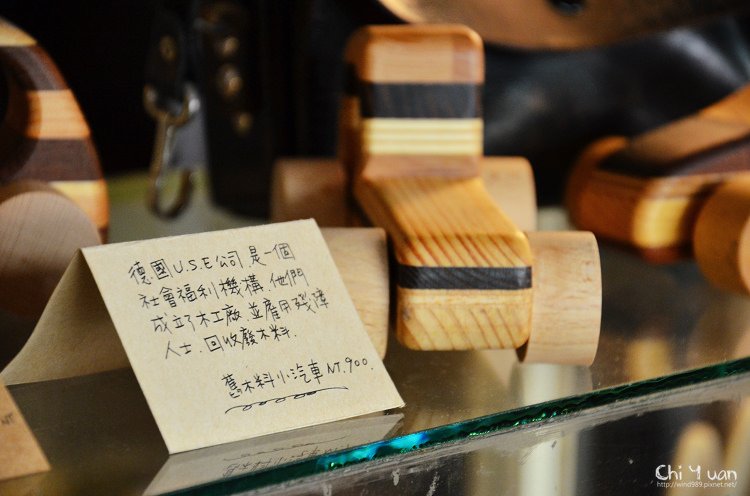 德國U.S.E公司,是一個
社會福利機構,他們
成立了木工廠,並雇用殘障
人士.回收廢木料.
舊木料小汽車NT.900.
NT
Chi Yuan
http://wind989.pixnet.net/